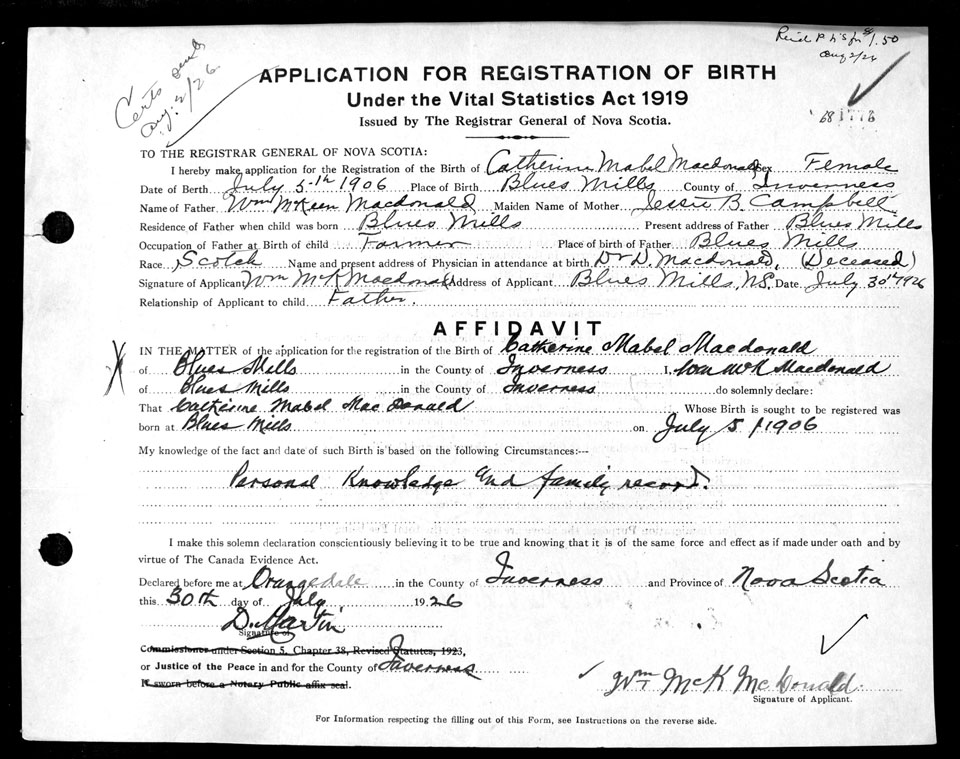 Certs sent
Aug. 2/26
$1.50
Aug 2/26
APPLICATION FOR REGISTRATION OF BIRTH
Under the Vital Statistics Act 1919
Issued by The Registrar General of Nova Scotia.
TO THE REGISTRAR GENERAL OF NOVA SCOTIA:
I hereby make application for the Registration of the Birth of Catherine Mabel Macdonald Sex Female
Date of Berth July 5th 1906 Place of Birth Blues Mills County of Inverness
Name of Father Wm McKeen Macdonald Maiden Name of Mother Jessie B. Campbell
Residence of Father when child was born Blues Mills Present address of Father Blues Mills
Occupation of Father at Birth of child Farmer Place of birth of Father Blues Mills
Race Scotch Name and present address of Physician in attendance at birth Dr D. Macdonald, (Deceased)
Signature of Applicant Wm McK Macdonald Address of Applicant Blues Mills, N.S. Date July 30th 1926
Relationship of Applicant to child Father.
AFFIDAVIT
IN THE MATTER of the application for the registration of the Birth of Catherine Mabel Macdonald
of Blues Mills in the County of Inverness I, Wm McK Macdonald
of Blues Mills in the County of Inverness do solemnly declare:
That Catherine Mabel MacDonald Whose Birth is sought to be registered was
born at Blues Mills on July 5 / 1906
My knowledge of the fact and date of such Birth is based on the following Circumstances:—
Personal Knowledge and family record.
I make this solemn declaration conscientiously believing it to be true and knowing that it is of the same force and effect as if made under oath and by
virtue of The Canada Evidence Act.
Declared before me at Orangedale in the County of Inverness and Province of Nova Scotia
this 30th day of July 1926
D. Martin
Signature of
Commissioner under Section 5, Chapter 38, Revised Statutes, 1923,
or Justice of the Peace in and for the County of Inverness
If sworn before a Notary Public affix seal.
Wm McK McDonald
Signature of Applicant.
For Information respecting the filling out of this Form, see Instructions on the reverse side.